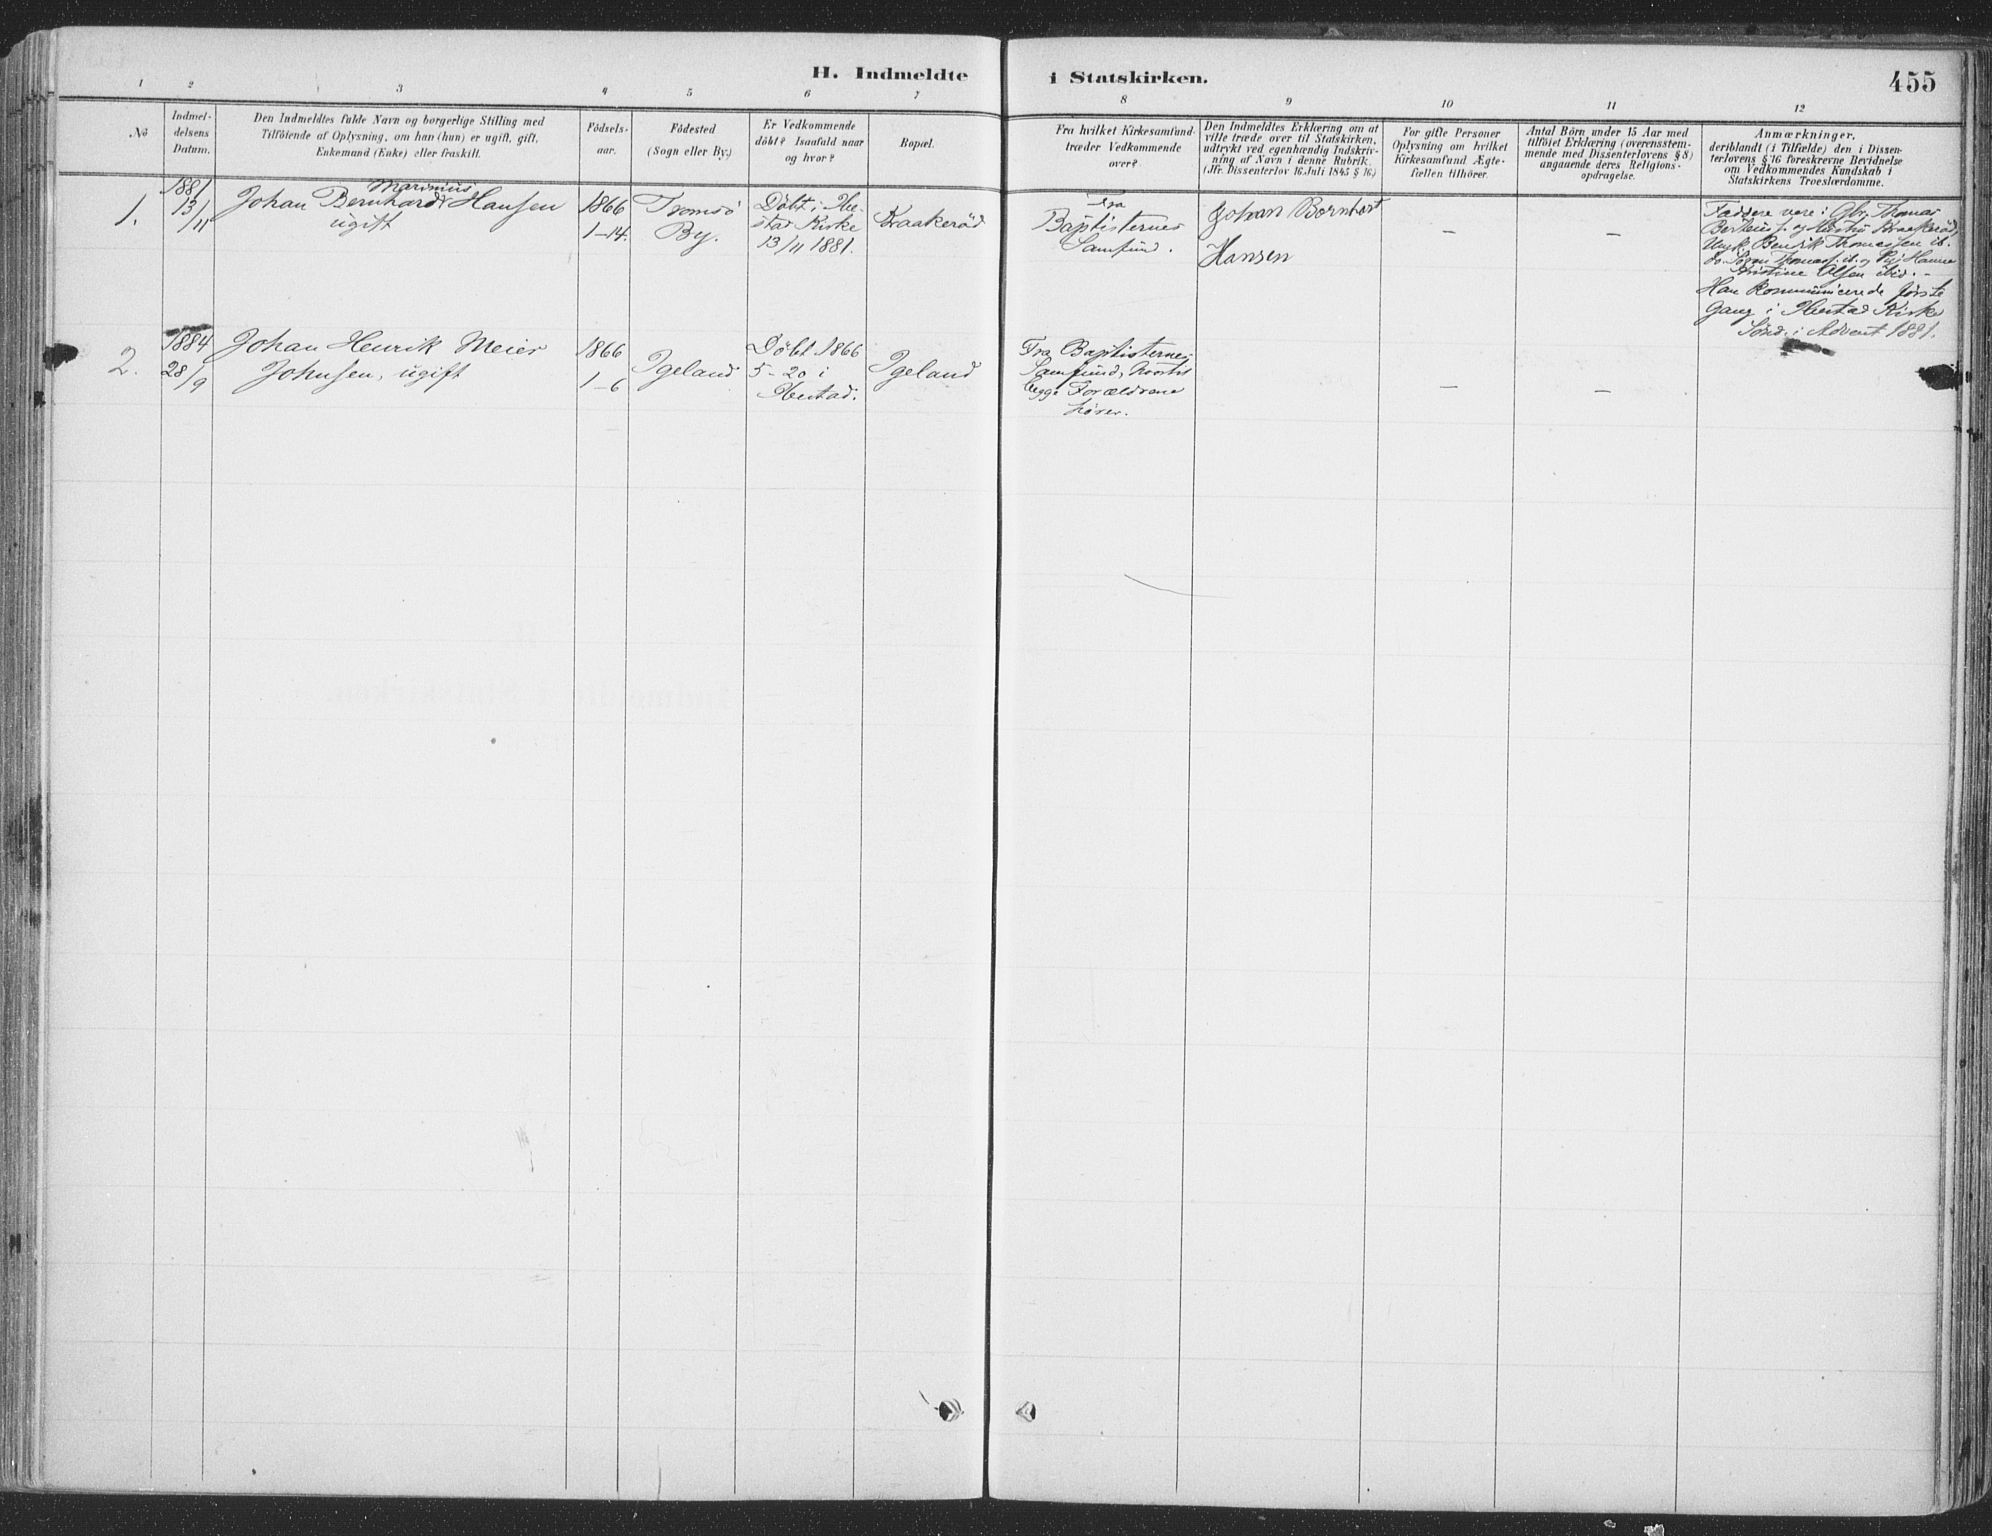 H. Indmeldte i Statskirken.
455
1 2 3 4 5 6 7 8 9 10 11 12
No
Indmel-
delsens
Datum.
Den Indmeldtes fulde Navn og borgerlige Stilling med
Tilföiende af Oplysning, om han (hun) er ugift, gift,
Enkemand (Enke) eller fraskilt.
Födsels-
aar.
Födested
(Sogn eller By.)
Er Vedkommende
döbt? Isaafald naar
og hvor?
Bopæl.
Fra hvilket Kirkesamfund
træder Vedkommende
over?
Den Indmeldtes Erklæring om at
ville træde over til Statskirken,
udtrykt ved egenhændig Indskriv-
ning af Navn i denne Rubrik.
(Jfr. Dissenterlov 16. Juli 1845 § 16.)
For gifte Personer
Oplysning om hvilket
Kirkesamfund Ægte-
fællen tilhörer.
Antal Börn under 15 Aar med
tilföiet Erklæring (overensstem-
mende med Dissenterlovens § 8)
angaaende deres Religions-
opdragelse.
Anmærkninger,
deriblandt (i Tilfælde) den i Dissen-
terlovens § 16 foreskrevne Bevidnelse
om Vedkommendes Kundskab i
Statskirkens Troeslærdomme.
1.
1881
13/11
Marinius
Johan Bernhard Hansen
ugift
1866
1-14.
Tromsö
By.
Döbt i Ibe-
stad Kirke
13/11 1881.
Kraakeröd
Fra
Baptisternes
Samfund.
Johan Bernhart
Hansen
-
-
Faddere vare: Gbr. Thomas
Berteus f. og Hustru Kraakeröd,
Ungk. Bendik Thomassen ib.
Søren Thomass. ib. og Pig. Hanna
Kristine Olsen ibid. -
Han kommunicerede første
Gang i Ibestad Kirke
Sönd. i Advent 1881.
2.
1884
28/9
Johan Henrik Meier
Johnsen, ugift
1866
1-6
Igeland
Döbt 1866
5-20 i
Ibestad.
Igeland
Fra Baptisternes
Samfund, hvortil
begge Forældrene
hører.
-
-